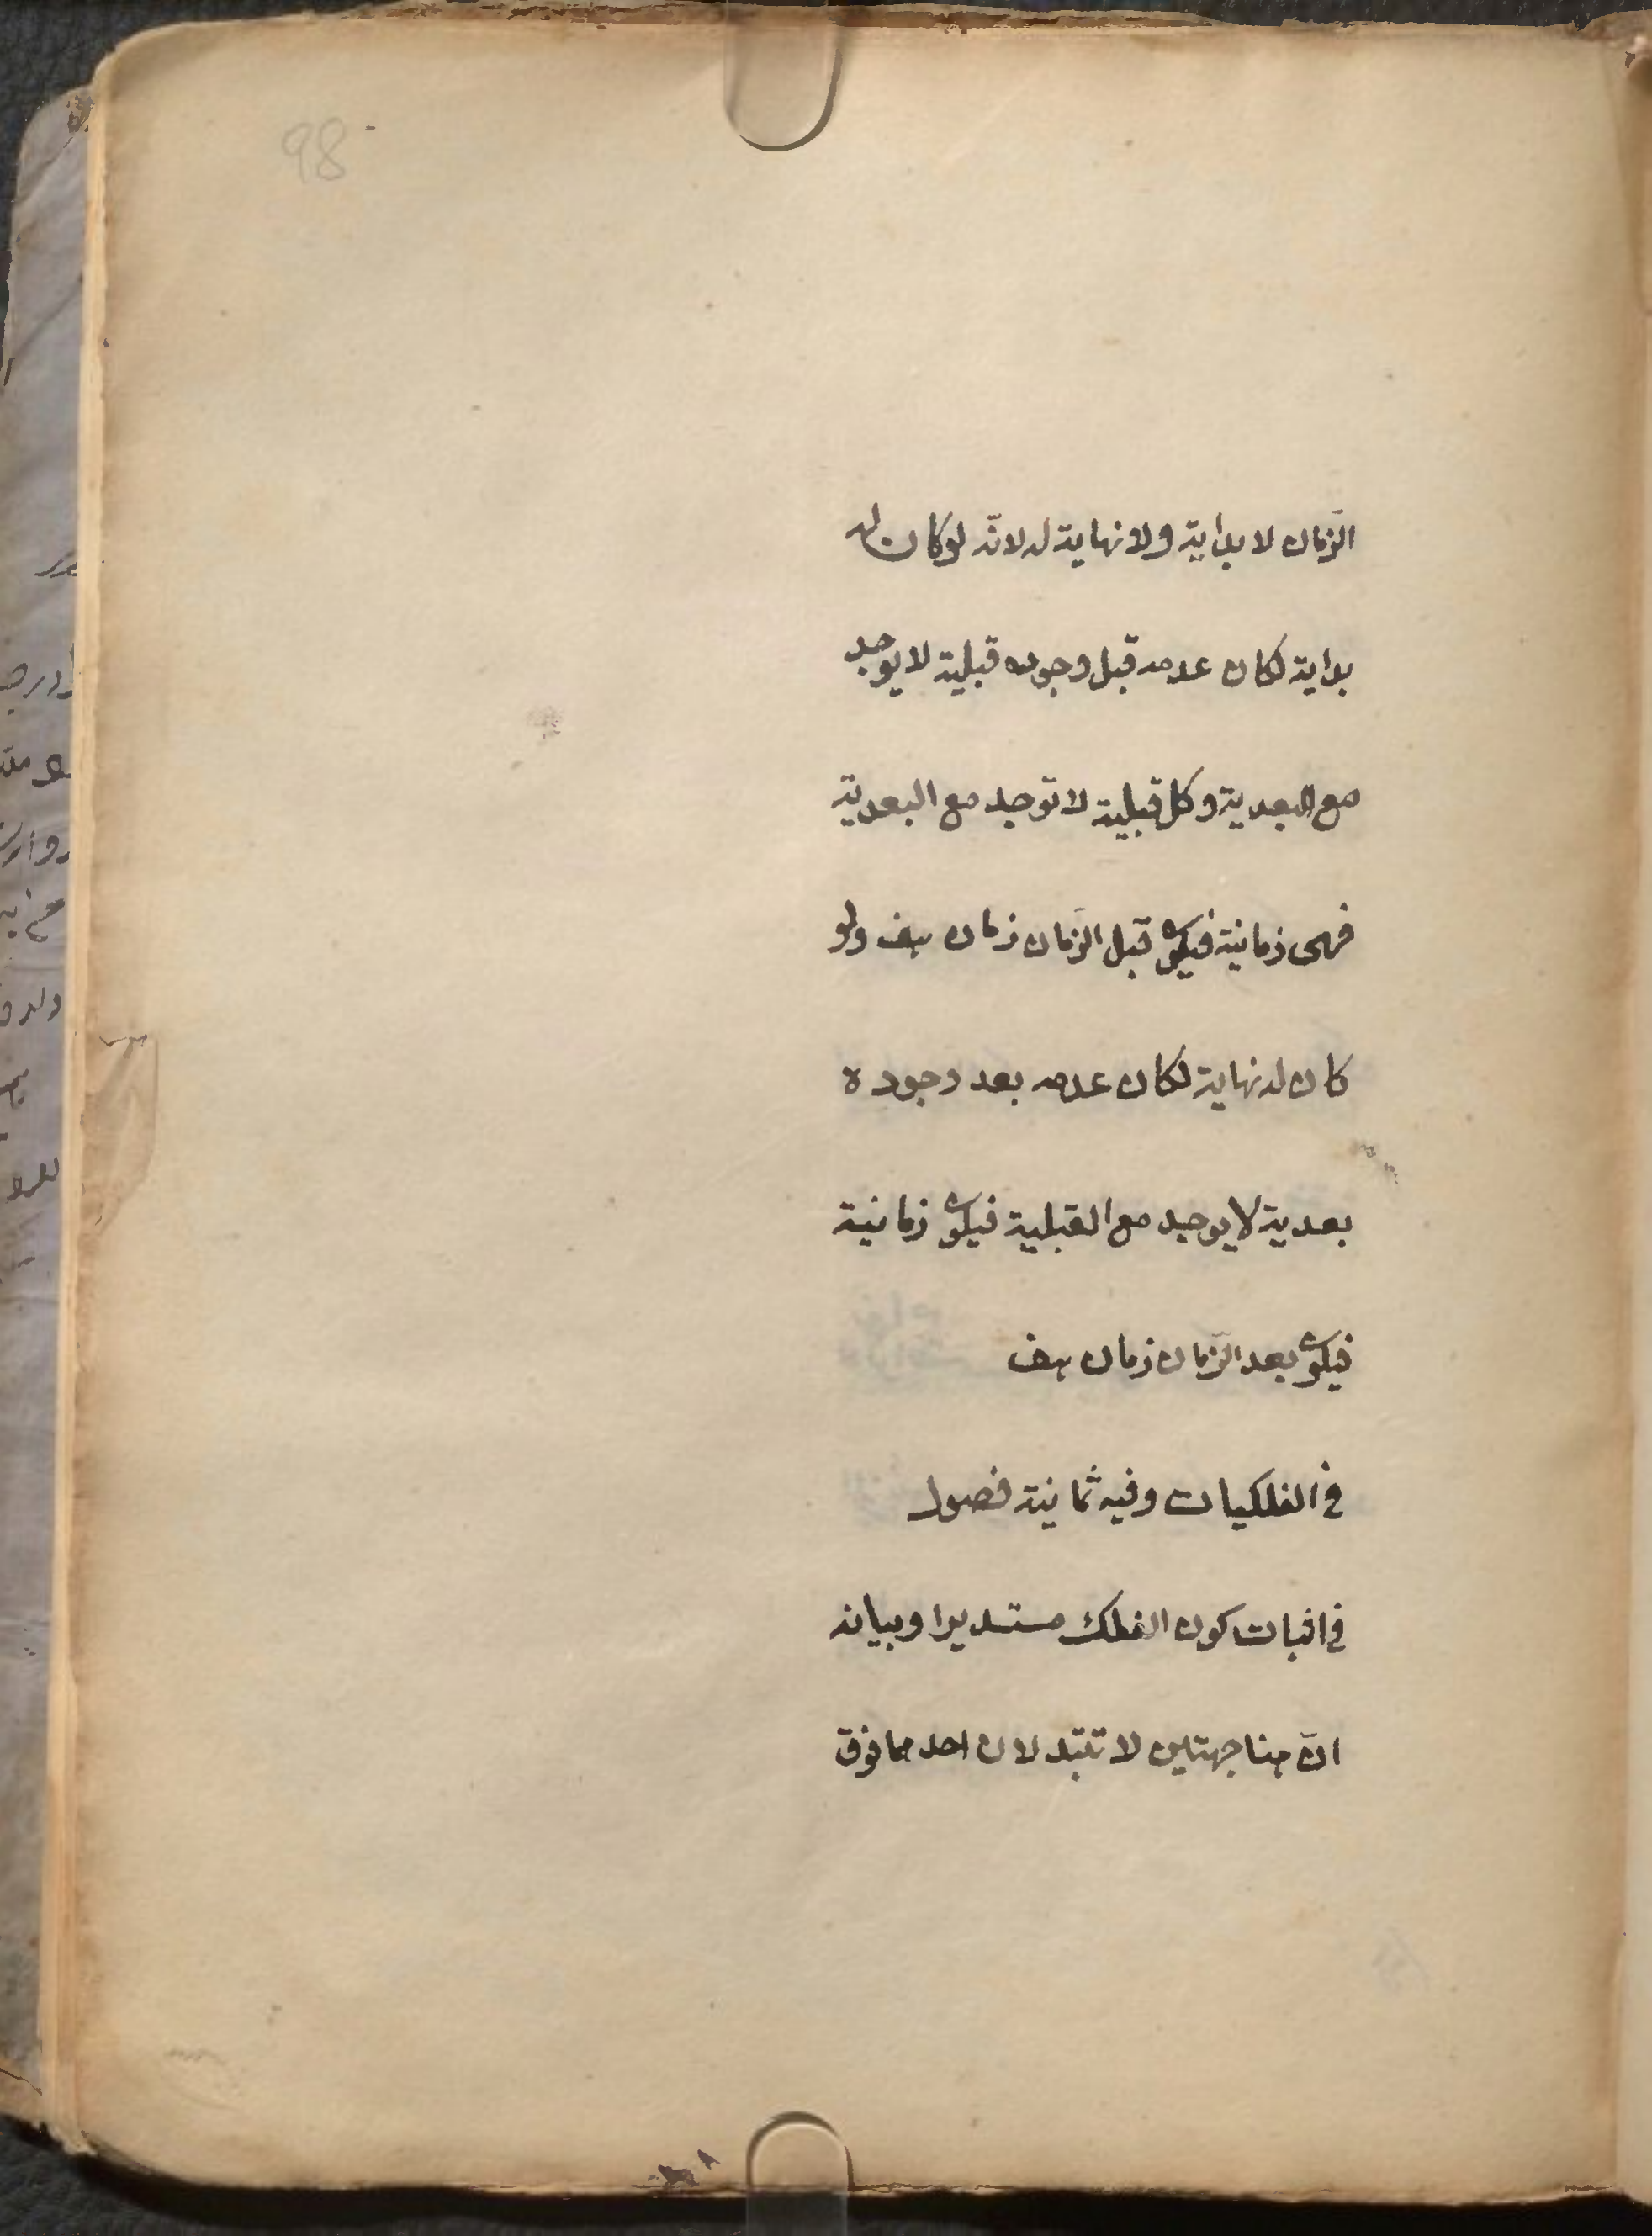 98
الزّمان لا بداية ولا نهاية له لانّه لو كان له
بداية لكان عدمه قبل وجوده قبلية لا يوجد
مع البعدية وكل قبلية لا توجد مع البعدية
فهى زمانية فيكون قبل الزّمان زمان هف ولو
كان له نهاية لكان عدمه بعد وجوده
بعدية لا يوجد مع القبلية فيكون زمانية
فيكون بعد الزّمان زمان هف
فى الفلكيات وفيه ثمانية فصول
فى اثبات كون الفلك مستديرا وبيانه
انّ هنا جهتين لا تتبدلان احدهما فوق